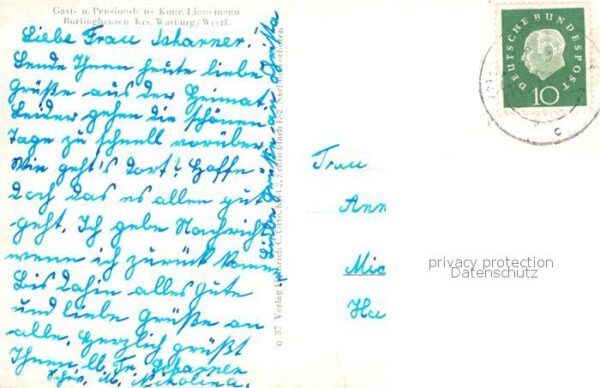 Gast- u. Pensionsh us Konr. Linnemann
Borlinghausen Krs. Warburg/Westf.
Liebe Frau Scharner.
Sende Ihnen heute liebe
Grüße aus der Heimat.
Leider gehen die schönen
Tage zu schnell vorüber.
Wie geht's dort? Hoffe-
doch das es allen gut
geht. Ich gebe Nachricht
wenn ich zurück komme
Bis dahin alles Gute
und liebe Grüße an
alle. Herzlich grüßt
Ihnen
Liebe Grüße
o 37 Verlag
DEUTSCHE BUNDESPOST
10
c
Frau
Ann
Mic
Ha
privacy protection
Datenschutz